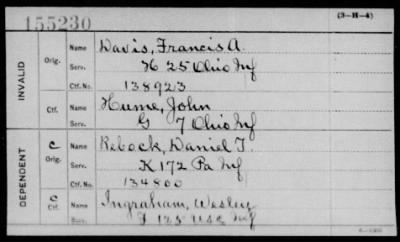 155230
(3-H-4)
INVALID
Orig.
Name Davis, Francis A.
Serv. H 25 Ohio Inf
Ctf. No. 138923
Ctf.
Name Hume, John
Serv. G 7 Ohio Inf
DEPENDENT
C
Orig.
Name Rebock, Daniel T.
Serv. K 172 Pa Inf
Ctf. No. 134800
C
Ctf.
Name Ingraham, Wesley
Serv. I 125 USC Inf